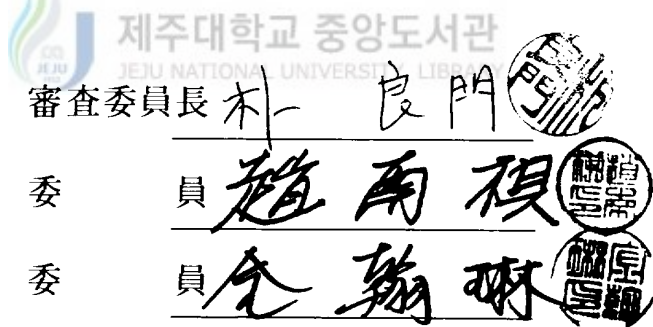 제주대학교 중앙도서관
JEJU NATIONAL UNIVERSITY LIBRARY
審査委員長 朴 良門
委 員 趙南禎
委 員 全翰琳